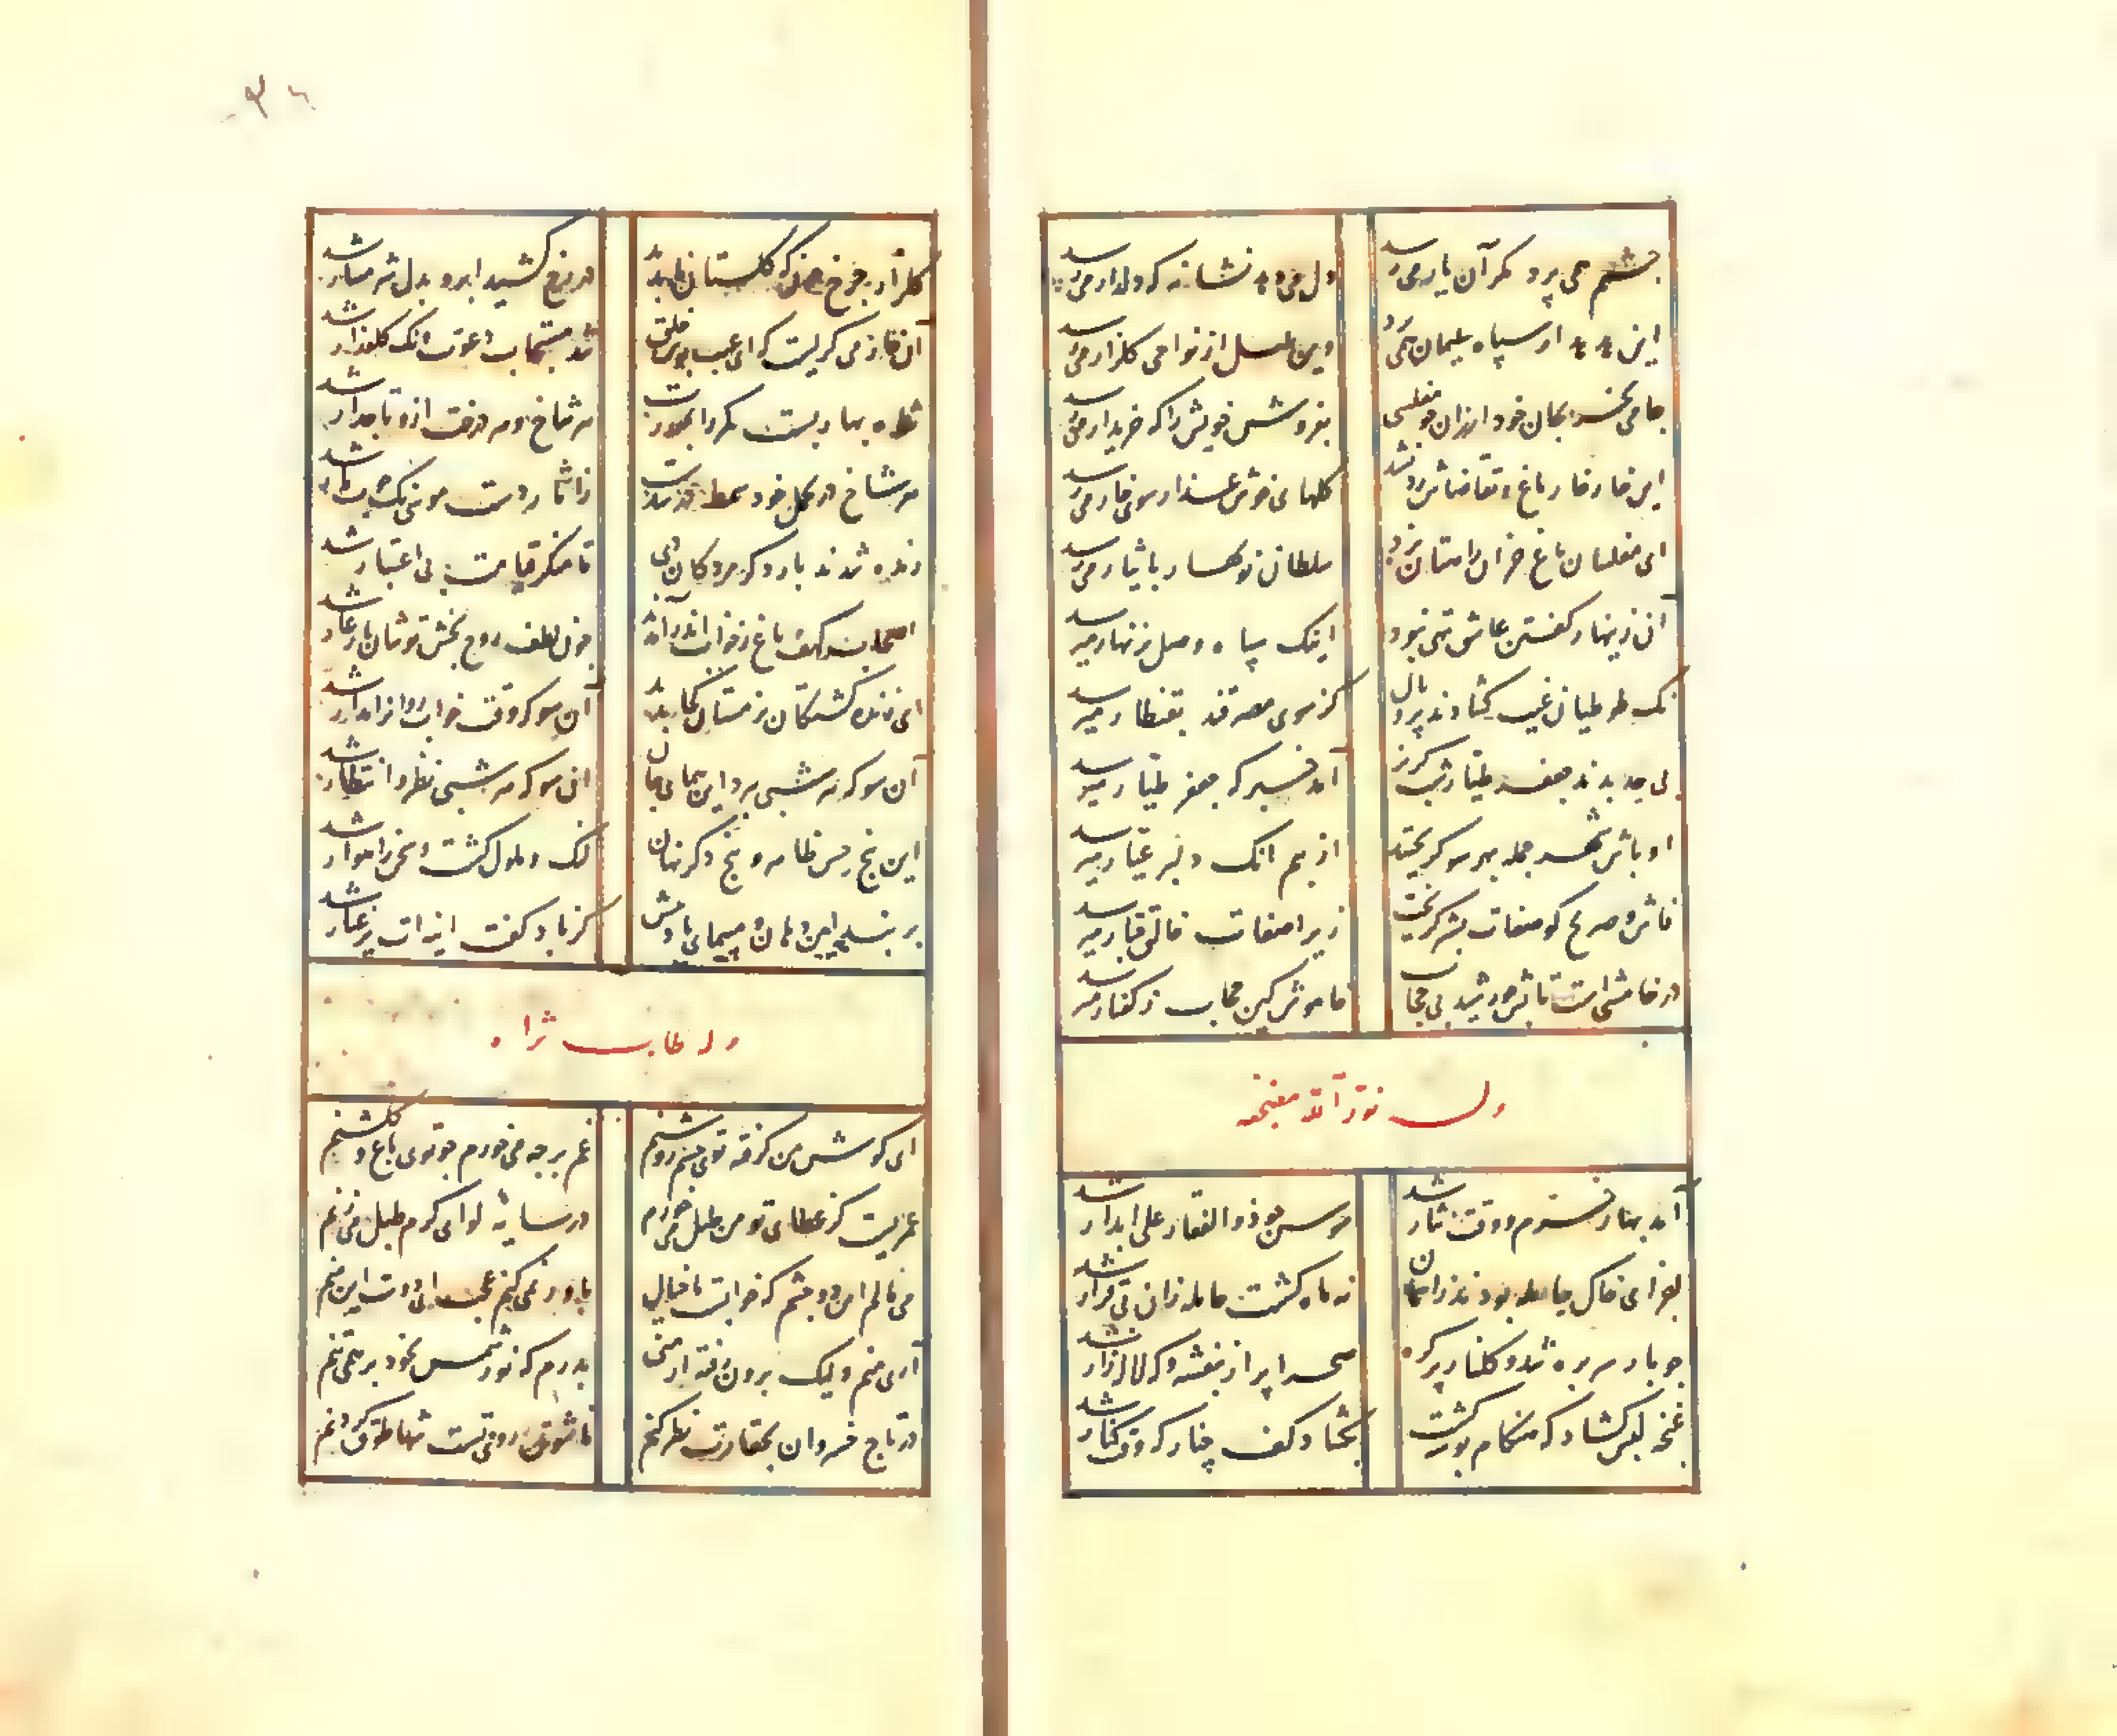 چشمم همی پرد مکر آن یار می رسد
دل می دهد نشانه که دلدار می رسد
این هدهد از سپاه سلیمان همی پرد
وین بلبل از نواحی کلزار می رسد
جامی بخر بجان و خود ارزان چو مفلسی
بفروش خویش را که خریدار می رسد
این خار خار باغ و تقاضاش رد نشد
کلهای خوش عذار سوی خار می رسد
ای مفلسان باغ خزان راهتان بزد
سلطان نوبهار بایثار می رسد
آن زینهار کفتن عاشق تهی نبود
اینک سپاه وصل بزنهار میرسد
نک طوطیان غیب کشادند پر و بال
کز سوی مصر قند بقنطار میرسد
بی جد بدند جعفر طیار شب کریز
آمد خبر که جعفر طیار میرسد
اوباش شهر جمله بهر سو کریختند
از بیم آنک دلبر عیار میرسد
فاش و صریح کو صفات بشر کریخت
زیرا صفات خالق قهار میرسد
در خامشی است تابش خورشید بی حجاب
خاموش کین حجاب ز کفتار میرسد
وله نور الله مضجعه
آمد بهار خرم و وقت نثار شد
سوسن چو ذوالفقار علی آبدار شد
اجزای خاک حامله بودند از آسمان
نه ماه کشت حامله زان بی قرار شد
جوبار سربره شد و کلنار پر کره
صحرا پر از بنفشه و که لاله زار شد
غنچه لبش کشاد که هنکام بوسه کشت
بکشاد کف چنار که وقت کنار شد
کلزار چرخ چونکه کلستان ما بدید
در رخ کشید ابر و بدل شرمسار شد
آن خار می کریست که ای عیب پوش خلق
شد مستجاب دعوت او کلعذار شد
شاه بهار بست کمر را بمعذرت
هر شاخ و هر درخت ازو تاجدار شد
زنده شدند بار دکر مردکان دی
تا منکر قیامت بی اعتبار شد
اصحاب کهف باغ ز خواب اندر آمدند
چون لطف روح بخش توشان یار غار شد
ای زنده کشتکان زمستان کجا بدید
آن سو که وقت خواب روان را مدار شد
آن سو که هر شبی بپرد این حواس و جان
آن سو که هر شبی نظر و انتظار شد
این پنج حس ظاهر و پنج دکر نهان
لنک و ملول کشت و سحر راهوار شد
بربند این دهان و مپیمای باد بیش
کز باد کفت آینه ات پر غبار شد
وله طاب ثراه
ای کوش من کرفته توی چشم روشنم
غم بر چه می خورم چو توی باغ و کلشنم
عمریست کز عطای تو من طبل می خورم
در سایه لوای کرم طبل می زنم
می مالم این دو چشم که خوابست یا خیال
باور نمی کنم عجب ای دوست این منم
آری منم ولیک برون رفته از منی
بدرم که نور شمس بخود بر همی تنم
در تاج خسروان بحقارت نظر کنم
تا شوق روی تست شها طوق کردنم